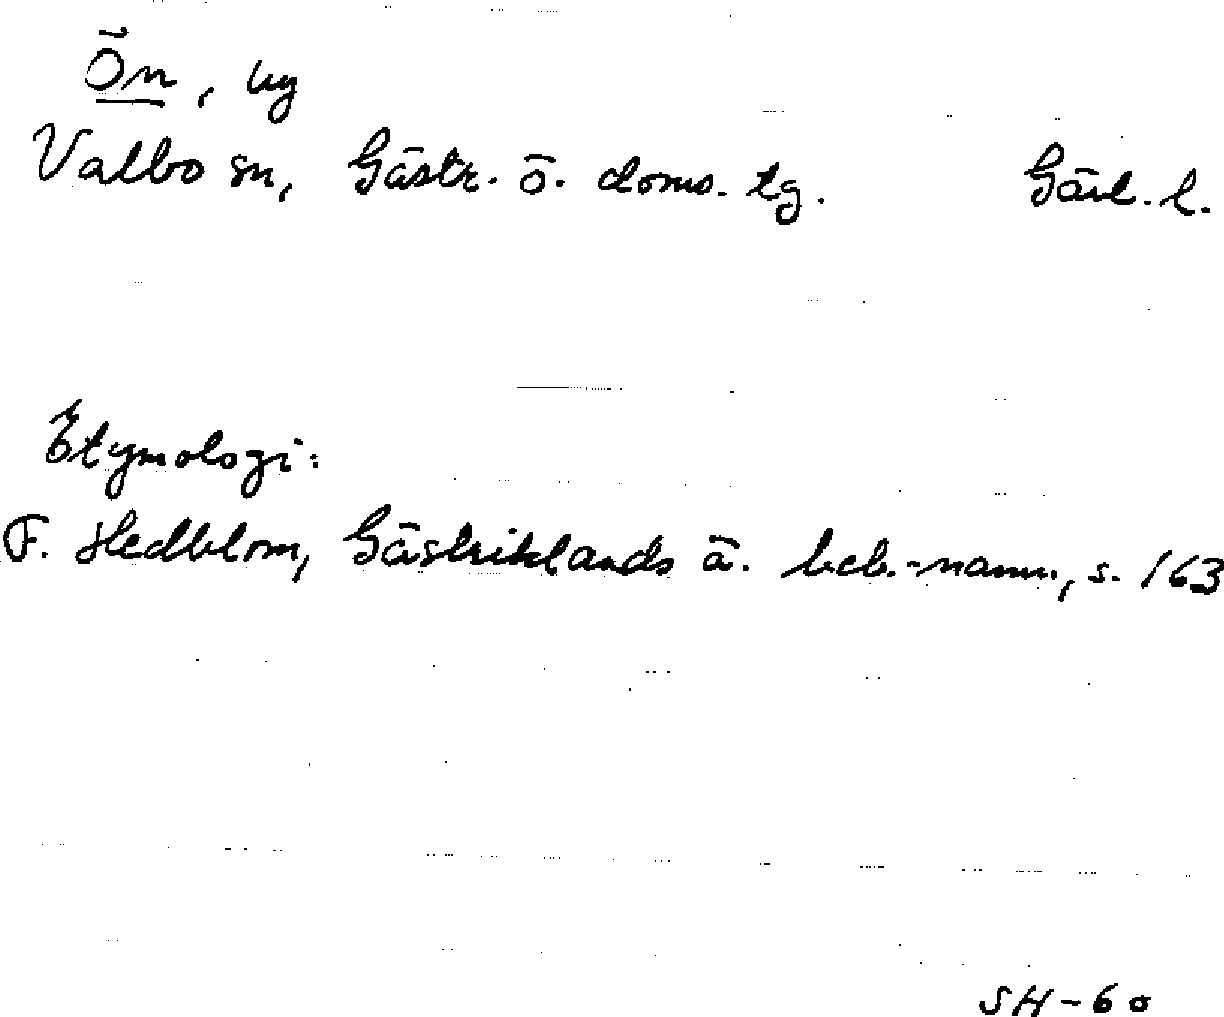 Ön, by
Valbo sn, Gästr. ö. doms. tg. Gävl. l.
Etymologi:
F. Hedblom, Gästriklands ä. beb.-namn, s. 163
SH-60